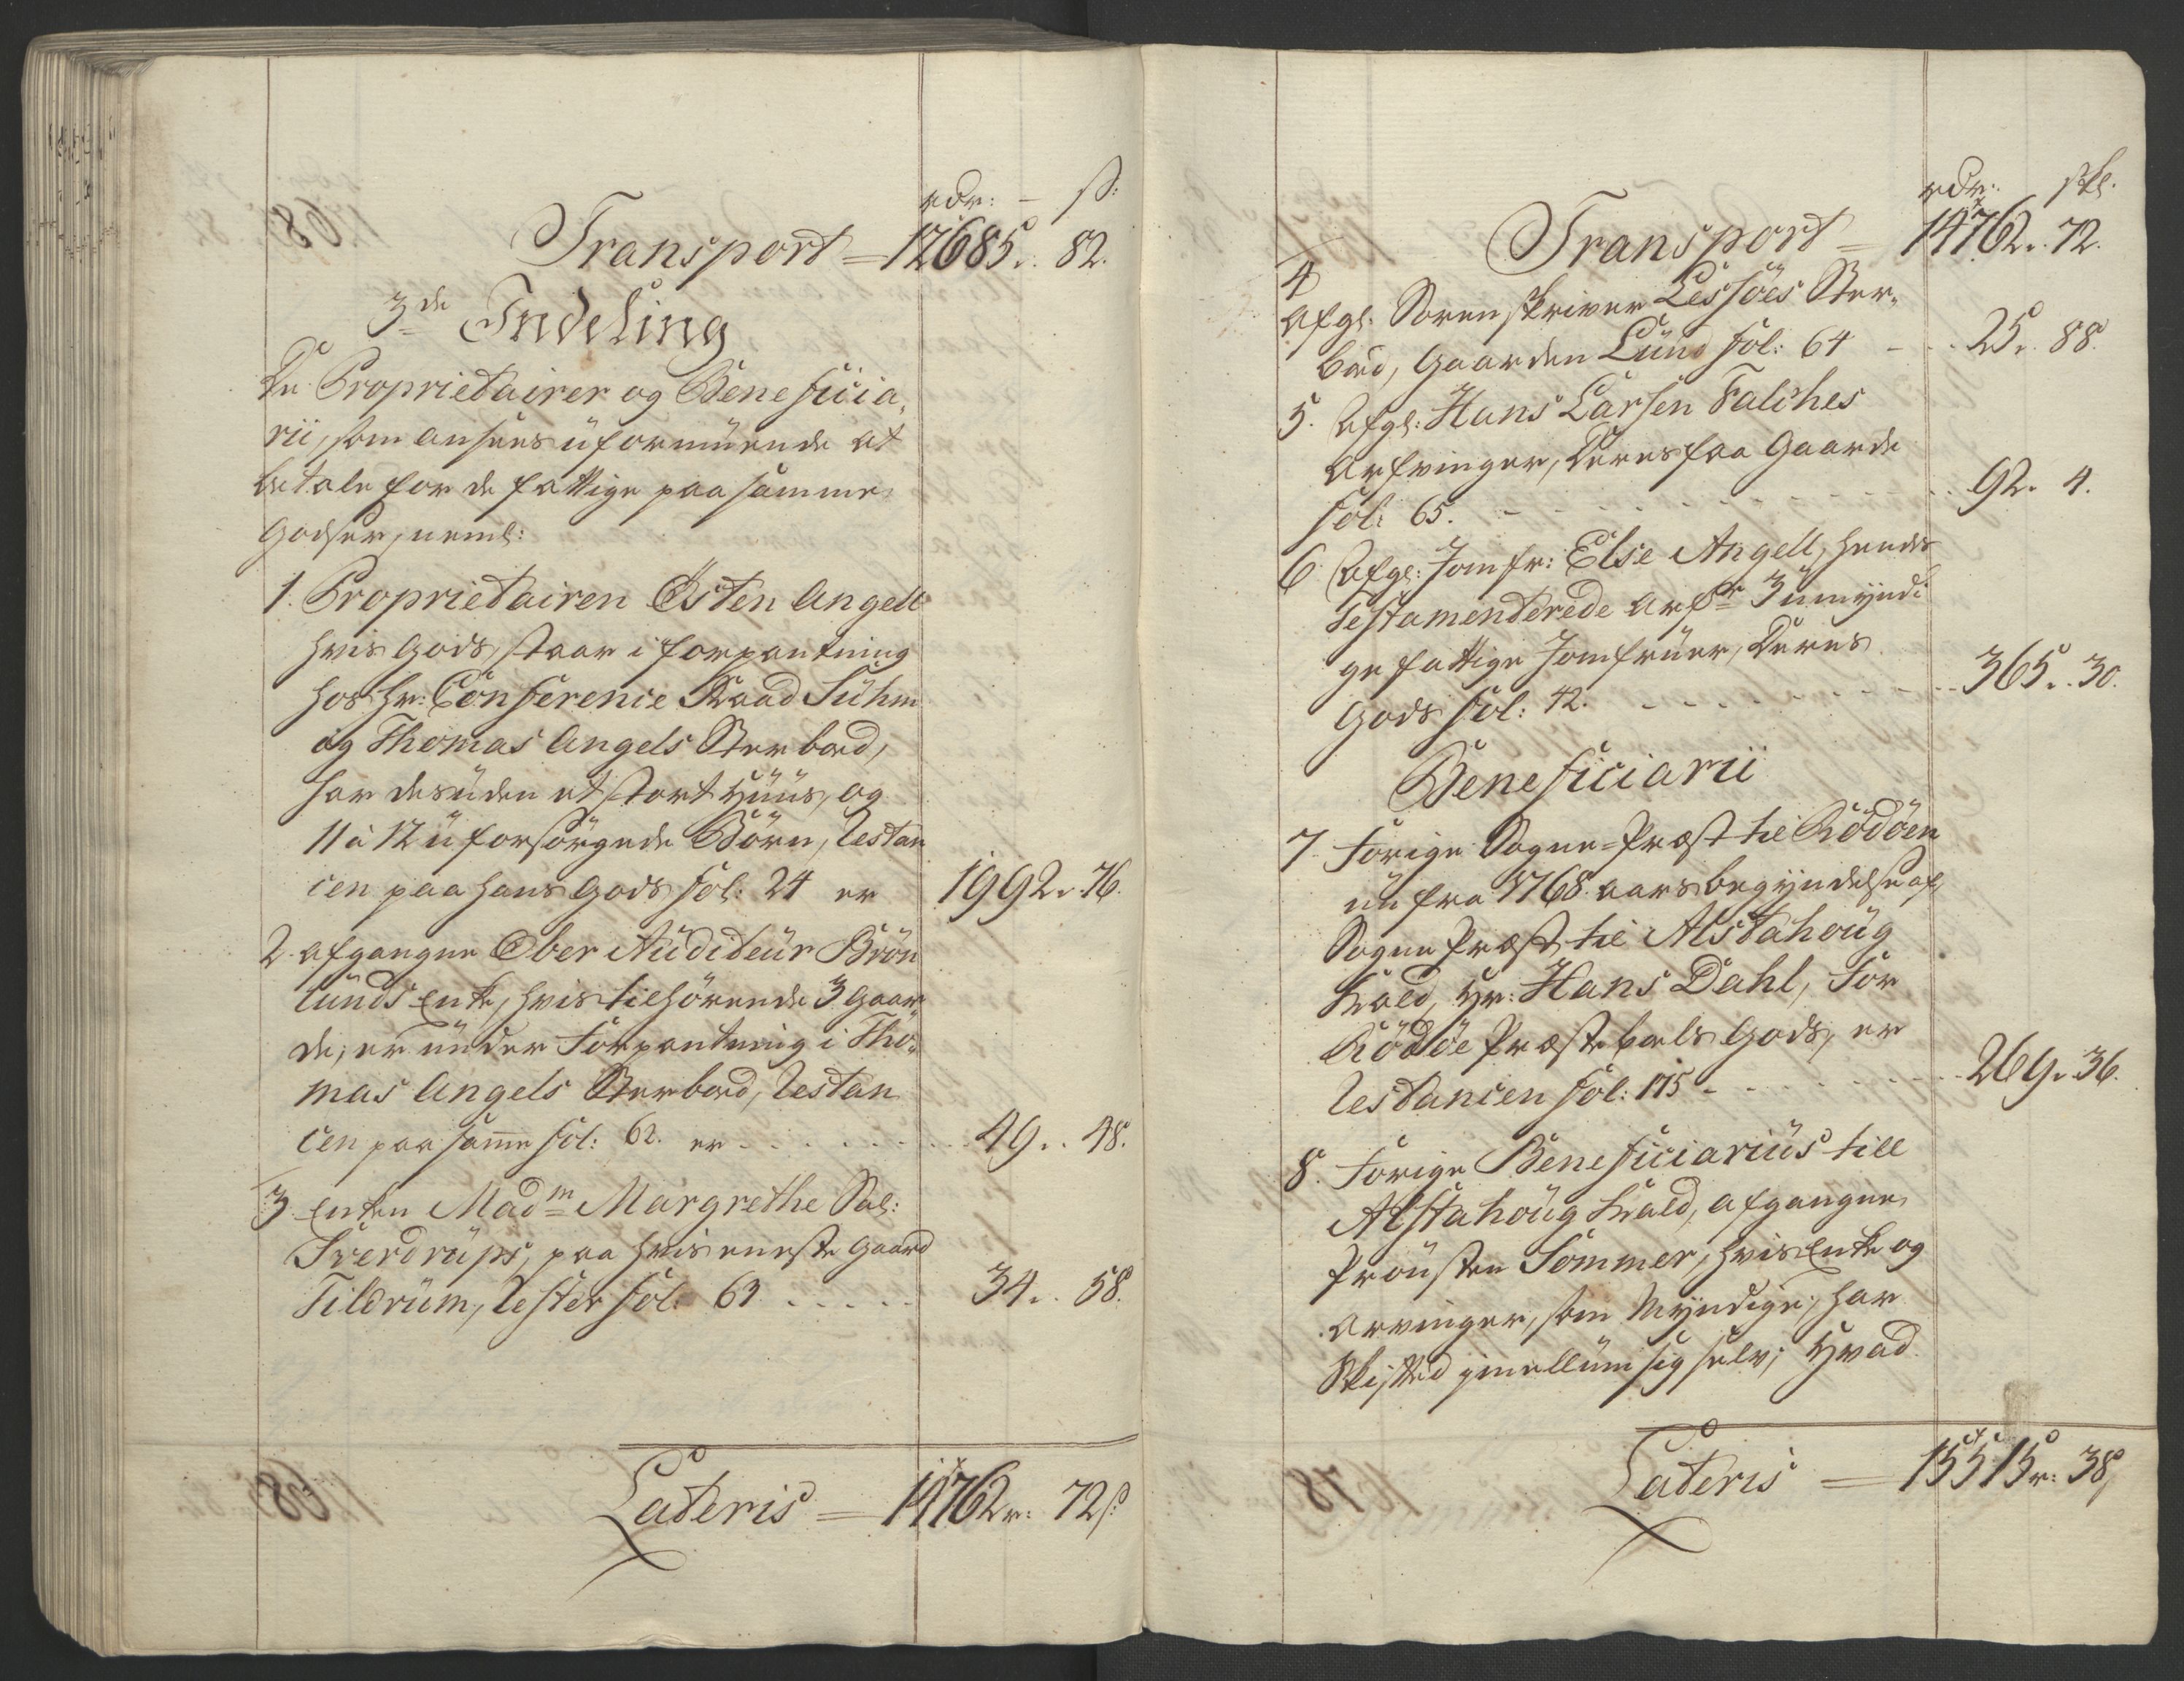 rdr: – ß:
Transport = 12685. 82.
3de Indeling
De Proprietairer og Beneficia„
rii, som ansees uformuende at
betale for de fattige paa samme
Godser, neml:
1. Proprietairen Østen Angell
hvis Gods, staar i forpantning
hos Hr: Conference Raad Suhm
og Thomas Angels Sterboed,
har desuden et stort Huus, og
11 à 12 uforsørgede Børn, Restan
cen paa hans Gods fol: 24 er 1992. 76.
2. Afgangne Ober Auditeur Brön
lunds Enke, hvis tilhørende 3 Gaar„
de, er under Forpantning i Tho„
mas Angels Sterboed, Restan
cen paa same fol: 62. er - - - - 49. . 48.
3 Enken Madm Margrethe Sal:
Sverdrups, paa hvis eneste Gaard
Tildrum, Rester fol: 63 - - - - - 34. . 58.
Lateris = 14762r: 72ß
rdr: skl.
Transport = 14762. 72.
4 Afgl: Sorenskriver Lessöes Ster„
boed, Gaarden Lund fol: 64 - - - 25. 88.
5. Afgl: Hans Larsen Falches
Arfvinger, Deres faa Gaarde
fol: 65. - - - - - - - 92. 4.
6. Afgl: Jomfr: Else Angell, hendes
Testamenterede Arfr 3 umyndi
ge fattige Jomfruer, Deres
Gods fol: 42. - - - - - - 365. . 30.
Beneficiarii
7. Forige Sogne-Præst til Rödöen
nu fra 1768 aars begyndelse af,
Sogne Præst til Alstahoug
Kald, Hr: Hans Dahl, for
Rödöe Præstebols Gods, er
Restancen fol: 175 - - - - - 269. 36.
8. Forige Beneficiarius till
Alstahoug Kald, afgangne
Prousten Sommer, hvis Enke og
Arvinger, som Myndige, har
Skiftted imellum sig selv; hvad
Lateris = 15515r: 38ß